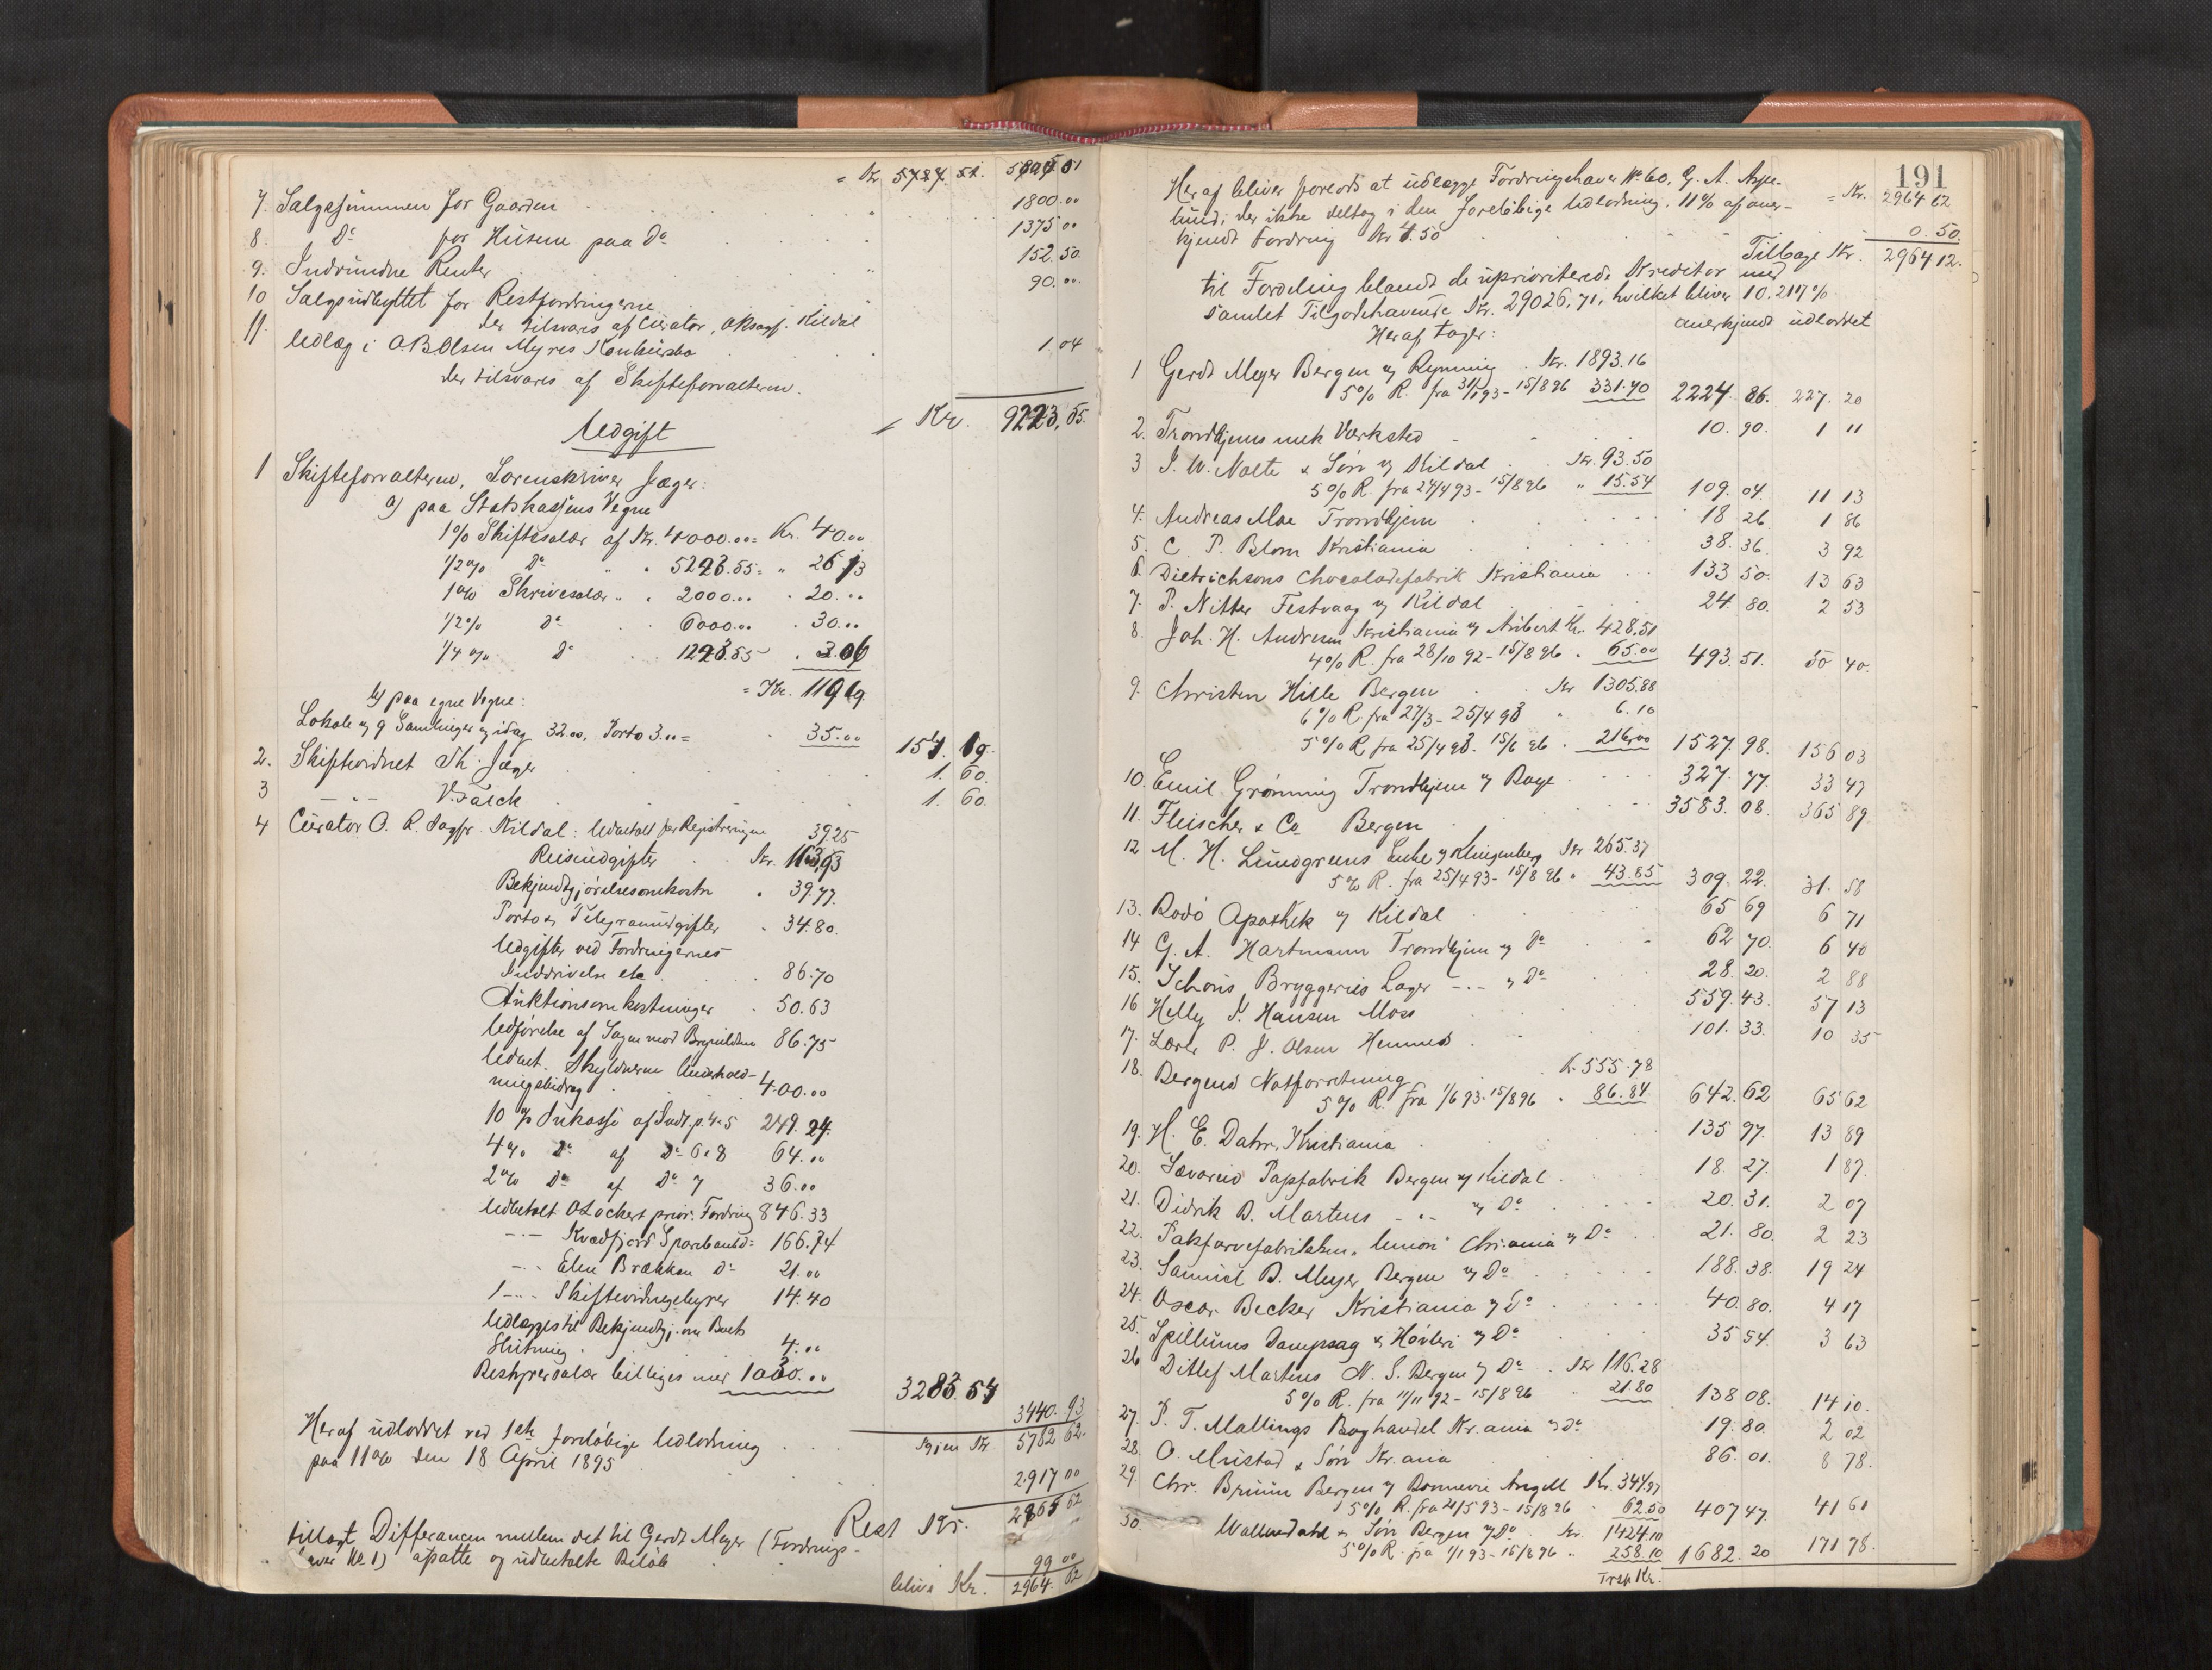 = Kr. 5787.51. 5805 01
7. Salgssummen for Gaarden 1800.00
8. Do for Husene paa Do 1375 00
9. Indvundne Renter 152.50.
10 Salgsudbyttet for Restfordringerne 90.00.
der tilsvares af Curator, ORsagf. Kildal
11 Udlæg i O.B. Olsen Myres Konkursbo 1.04
der tilsvares af Skifteforvalteren.
Kr. 9223,55.
Udgift
1 Skifteforvalteren, Sorenskriver Jæger:
a) paa Statskassens Vegne
1% Skiftesalær af Kr. 4000.00 = Kr. 40.00
1/2% Do " " 5223.55 = " 26.13
1% Skrivesalær " " 2000.00 " 20.00
1/2% do 6000.00 30.00
1/4% Do 1223.55 3.06
= Kr. 119.19
b) paa egne Vegne:
Lokale og 9 Samlinger og idag 32.00, Porto 3.00 = 35.00 154. 19.
2. Skiftevidnet Th. Jæger 1. 60.
3 -"- V. Falck 1. 60.
4 Curator O. R. Sagfr. Kildal: Udbetalt for Registreringen 39.25
Reiseudgifter Kr. 163,93
Bekjendtgjørelsesomkostn 39.77.
Porto & Telegramudgifter 34.80.
Udgifter ved Fordringernes
Inddrivelse etc 86.70
Auktionsomkostninger 50.63
Udførelse af Sagen mod 86.75
Udbet. Skyldneren Underhold-
ningsbidrag 400.00
10% Inkasso af Indt. p. 4 & 5 249.24.
4% Do af Do 6 & 8 64.00
2% Do af Do 7 36.00
Udbetalt O Lockert prior. Fordring 846.33
-"- Kvædfjord Sparebank Do 166.74
-"- Elen Brækkan Do 21.00
-"- Skiftevidnegebyrer 14.40
Udlægges til Bekjendtgj. om Boets
Slutning 4.00
Bestyrersalær billiges med 1000.00
3283.54
3440.93
Igjen Kr. 5782 62.
Heraf udloddet ved 1ste foreløbige Udlodning
paa 11% den 18 April 1895 2917 00
Rest Kr. 2865 62
tillagt Differancen mellem det til Gerdt Meyer (Fordrings-
haver No 1) afsatte og udbetalte Beløb 99 00
bliver Kr. 2964. 62
191
Heraf bliver forlods at udlægge Fordringshaver No 60, G. A. Aspe-
lund, der ikke deltog i den foreløbige Udlodning, 11% af aner- = Kr. 2964 62
kjendt Fordring Kr 4.50 0.50.
Tilbage Kr. 2964 12.
til Fordeling blandt de uprioriterede Kreditorer med
samlet Tilgodehavende Kr. 29026,71, hvilket bliver 10.217%
Heraf tager: anerkjendt udloddet
1 Gerdt Meyer Bergen og Rynning Kr. 1893.16
5% R. fra 31/1 93 - 15/8 96 331.70 2224. 86. 227. 20
2. Trondhjems mek Værksted 10. 90. 1 11
3 J. W. Nolte & Søn og Kildal Kr. 93.50
5% R. fra 24/4 93 - 15/8 96 " 15.54 109. 04. 11 13
4. Andreas Moe Trondhjem 18 26 1 86
5. C. P. Blom Kristiania 38. 36. 3 92
6. Dietrichsons Chocoladefabrik Kristiania 133 50. 13 63
7. P. Nitter Festvaag og Kildal 24. 80. 2 53
8. Joh. H. Andresen Kristiania og Aribert Kr. 428.51
4% R. fra 28/10 92 - 15/8 96 65.00 493. 51. 50 40.
9. Christen Hille Bergen Kr 1305.88
6% R. fra 27/3 - 25/4 93 6.10
5% R. fra 25/4 93. 15/8 96 216.00 1527. 98. 156 03
10. Emil Grønning Trondhjem og Bage 327. 77. 33 47
11. Fleischer & Co Bergen 3583. 08. 365 89.
12 M. H. Lundgreens Enke og Klingenberg Kr 265.37
5% R. fra 25/4 93 - 15/8 96 " 43.85 309. 22. 31. 58
13. Bodø Apothek og Kildal 65 69 6 71
14 G. A. Hartmann Trondhjem og Do 62 70. 6 40
15. Schous Bryggeries Lager -"- og Do 28. 20. 2 88
16 Helly J. Hansen Moss 559. 43. 57 13
17. Lars P. J. Olsen Hemnes 101. 33. 10 35
18. Bergens Notforretning K. 555.78
5% R. fra 1/6 93 - 15/8 96 " 86.84 642. 62 65 62
19. H. E. Dahr, Kristiania 135 97. 13 89
20. Sævareid Papfabrik Bergen og Kildal 18. 27. 1 87.
21. Didrik B. Martens -"- og Do 20. 31. 2 07
22. Pakfarvefabrikken "Union" Chr.ania og Do 21. 80. 2 23
23. Samuel B. Meyer Bergen og Do 188. 38. 19 24
24. Oscar Becker Kristiania og Do 40. 80. 4 17
25. Spillums Dampsag & Høvleri og Do 35 54. 3 63
26 Ditlef Martens N. S. Bergen og Do Kr 116.28
5% R. fra 11/11 92 - 15/8 96 21.80 138 08. 14 10.
27. P. T. Mallings Boghandel Kr.ania og do 19. 80. 2 02
28. O. Mustad & Søn Kr.ania 86. 01. 8 78.
29. Chr. Bruun Bergen og Bonnevie Angell Kr. 344.97
5% R. fra 21/5 93 - 15/8 96 62.50 407 47. 41 61
30. Wallendahl & Søn Bergen og Do Kr. 1424.10
5% R. fra 1/1 93 - 15/8 96 " 258.10 1682. 20 171 78.
Trsp Kr.